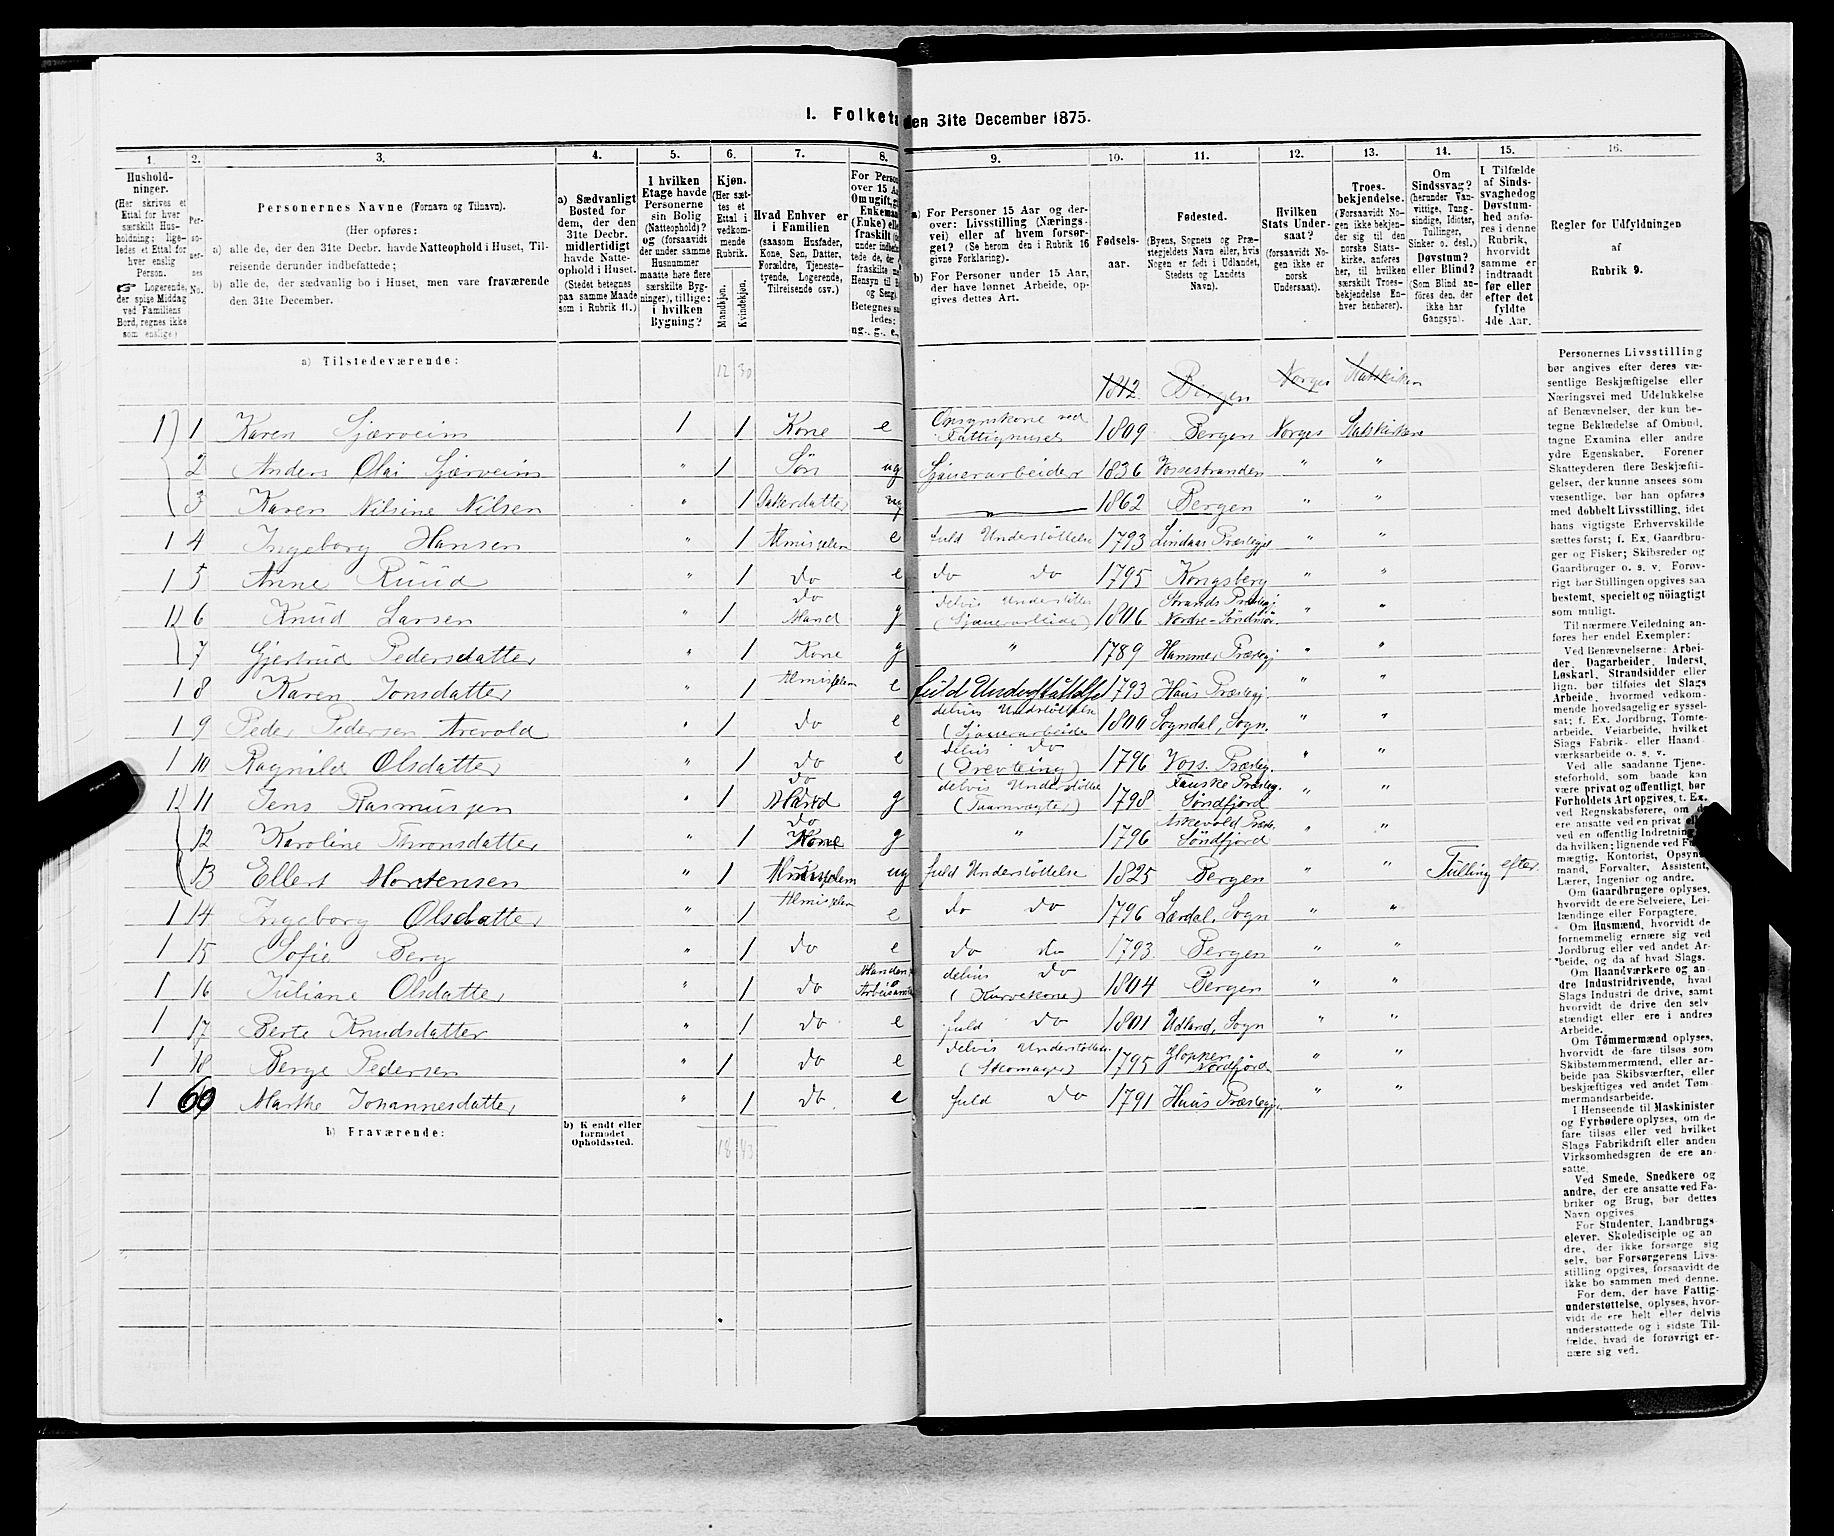 I. Folket
den 31te December 1875.
1. 2. 3. 4. 5. 6. 7. 8. 9. 10. 11. 12. 13. 14. 15. 16.
Hushold-
ninger.
(Her skrives et
Ettal for hver
særskilt Hus-
holdning; lige-
ledes et Ettal for
hver enslig
Person.
☞ Logerende,
der spise Middag
ved Familiens
Bord, regnes ikke
som enslige.)
Per-
so-
ner-
nes
No.
Personernes Navne (Fornavn og Tilnavn).
(Her opføres:
a) alle de, der den 31te Decbr. havde Natteophold i Huset, Til-
reisende derunder indbefattede;
b) alle de, der sædvanlig bo i Huset, men vare fraværende
den 31te December.
a) Sædvanligt
Bosted for
dem, der den
31te Decbr.
midlertidigt
havde Natte-
ophold i Huset.
(Stedet betegnes
paa samme Maade
som i Rubrik 11.)
I hvilken
Etage havde
Personerne
sin Bolig
(Natteophold)?
og (forsaavidt
der under samme
Husnummer
maatte høre flere
særskilte Byg-
ninger), tillige:
i hvilken
Bygning?
Kjøn.
(Her sæt-
tes et
Ettal i
vedkom-
mende
Rubrik.
Mandkjøn.
Kvindekjøn.
Hvad Enhver er
i Familien
(saasom Husfader,
Kone, Søn, Datter,
Forældre, Tjeneste-
tyende, Logerende,
Tilreisende osv.)
For Person
over 15 Aa
Om ugift, g
Enkema
(Enke) ell
fraskilt
Betegnes
ledes:
ug., g., e.
a) For Personer 15 Aar og der-
over: Livsstilling (Nærings-
vei) eller af hvem forsør-
get? (Se herom den i Rubrik 16
givne Forklaring).
b) For Personer under 15 Aar,
der have lønnet Arbeide, op-
gives dettes Art.
Fødsels-
aar.
Fødested.
(Byens, Sognets og Præ-
stegjeldets Navn eller, hvis
Nogen er født i Udlandet,
Stedets og Landets
Navn).
Hvilken
Stats Under-
saat?
(forsaavidt No-
gen ikke er
norsk
Undersaat).
Troes-
bekjendelse.
(Forsaavidt No-
gen ikke bekjen-
der sig til den
norske Stats-
kirke, anføres
her, til hvilken
særskilt Troes-
bekjendelse En-
hver henhører).
Om
Sindssvag?
(herunder Van-
vittige, Tung-
sindige, Idioter,
Tullinger,
Sinker o. desl.)
Døvstum?
eller Blind?
(Som Blind an-
føres den, der
ikke har
Gangsyn).
I Tilfælde
af Sinds-
svaghed og
Døvstum-
hed anfø-
res i denne
Rubrik,
hvorvidt
samme er
indtraadt
før eller
efter det
fyldte
4de Aar.
Regler for Udfyldningen
af
Rubrik 9.
a) Tilstedeværende: 12 30
1842 Bergen Norges Statskirken
1 1 Karen Sjærveim 1 1 Kone e Opsynskone ved Fattighuset 1809 Bergen Norges Statskirken
2 Anders Olai Sjærveim " 1 Søn ug Sjouerarbeider 1836 Vossestranden " "
3 Karen Nilsine Nilsen " 1 Datterdatter ug 1862 Bergen " "
1 4 Ingeborg Hansen " 1 Almislem e fuld Understøttelse 1793 Lindaas Præstegj " "
1 5 Anne Ruud " 1 do e do do 1795 Kongsberg " "
1 6 Knud Larsen " 1 do Mand g delvis Understøttelse (Sjouerarbeide) 1806 Strands Præstegj. Nordre-Søndmør. " "
7 Gjertrud Pedersdatter " 1 Kone g " 1789 Hammer Præstegj " "
1 8 Karen Jonsdatter " 1 Almislem e fuld Understøttelse 1793 Haus Præstegj. " "
1 9 Peder Pedersen Arevold " 1 do e delvis Understøttelse (Sjouerarbeide 1800 Sogndal, Sogn. " "
1 10 Ragnild Olsdatter " 1 do e delvis do (Drevteing) 1796 Vors. Præsteg. " "
1 11 Jens Rasmussen " 1 do Mand g delvis Understøttelse (Taarnvægter) 1798 Præsteg. Søndfjord " "
12 Karoline Thronsdatter " 1 do Kone g " 1796 Askevold Præste. Søndfjord " "
13 Ellert Mortensen " 1 Almislem ug fuld Understøttelse 1825 Bergen " " Tulling efter
1 14 Ingeborg Olsdatter " 1 Almislem e do do 1796 Lærdal, Sogn " "
1 15 Sofie Berg " 1 do e do do 1793 Bergen " "
1 16 Juliane Olsdatter " 1 do Manden delvis do (Kurvekone) 1804 Bergen " "
1 17 Berte Knudsdatter " 1 do e fuld do 1801 Urland, Sogn " "
1 18 Berge Pedersen " 1 do e delvis Understøttelse (Skomager) 1795 Gloppen Nordfjord " "
1 60 Marthe Johannesdatter " 1 do. e fuld do 1791 Haus Præstegj. " "
b) Fraværende:
b) Kjendt eller
formodet
Opholdssted.
18 43
Personernes Livsstilling
bør angives efter deres væ-
sentlige Beskjæftigelse eller
Næringsvei med Udelukkelse
af Benævnelser, der kun be-
tegne Beklædelse af Ombud,
tagne Examina eller andre
ydre Egenskaber. Forener
Skatteyderen flere Beskjæfti-
gelser, der kunne ansees som
væsentlige, bør han opføres
med dobbelt Livsstilling, idet
hans vigtigste Erhvervskilde
sættes først; f. Ex. Gaardbru-
ger og Fisker; Skibsreder og
Gaardbruger o. s. v. Forøv-
rigt bør Stillingen opgives saa
bestemt, specielt og nöiagtigt
som muligt.
Til nærmere Veiledning an-
føres her endel Exempler:
Ved Benævnelserne: Arbei-
der, Dagarbeider, Inderst,
Løskarl, Strandsidder eller
lign. bør tilføies det Slags
Arbeide, hvormed vedkom-
mende hovedsagelig er syssel-
sat; f. Ex. Jordbrug, Tomte-
arbeide, Veiarbeide, hvilket
Slags Fabrik- eller Haand
værksarbeide o. s. v.
Ved alle saadanne Tjene-
steforhold, som baade kan
være privat og offentligt, bør
Forholdets Art opgives, t. Ex.
ved Regnskabsførere, om de
ere ansatte ved en privat el
ved en offentlig Indretning
da hvilken; lignende ved Fu
mægtig, Kontorist, Opsyns
mand, Forvalter, Assistent,
Lærer, Ingeniør og andre.
Om Gaardbrugere oplyses,
hvorvidt de ere Selveiere, Lei-
lændinge eller Forpagtere.
Om Husmænd, hvorvidt de
fornemmelig ernære sig ved
Jordbrug eller ved andet Ar-
beide, og da af hvad Slags.
Om Haandværkere og an
dre Industridrivende, hvad
Slags Industri de drive, samt
hvorvidt de drive den selv
stændigt eller ere i andres
Arbeide.
Om Tømmermænd oplyses,
hvorvidt de fare tilsøs som
Skibstømmermænd, eller ar-
beide paa Skibsværfter, eller
beskjæftiges ved andet Tøm-
mermandsarbeide.
I Henseende til Maskinister
og Fyrbødere oplyses, om de
fare tilsøs eller ved hvilket
Slags Fabrikdrift eller anden
Virksomhedsgren de ere an-
satte.
Ved Smede, Snedkere og
andre, der ere ansatte ved Fa-
briker og Brug, bør dettes
Navn opgives.
For Studenter, Landbrugs
elever, Skoledisciple og an
dre, der ikke forsørge sig
selv, bør Forsørgerens Livs-
stilling opgives, forsaavidt de
ikke bo sammen med denne.
For dem, der have Fattig-
understøttelse, oplyses, hvor-
vidt de ere helt eller delvis
understøttede og i sidste Til-
fælde, hvad de forøvrigt er-
nære sig ved.